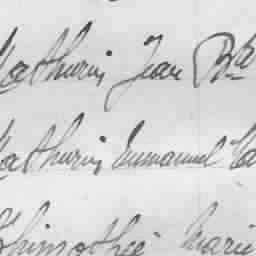 Mathurin Jean Bte
Mathurin Emmanuel
Thimothée Marie